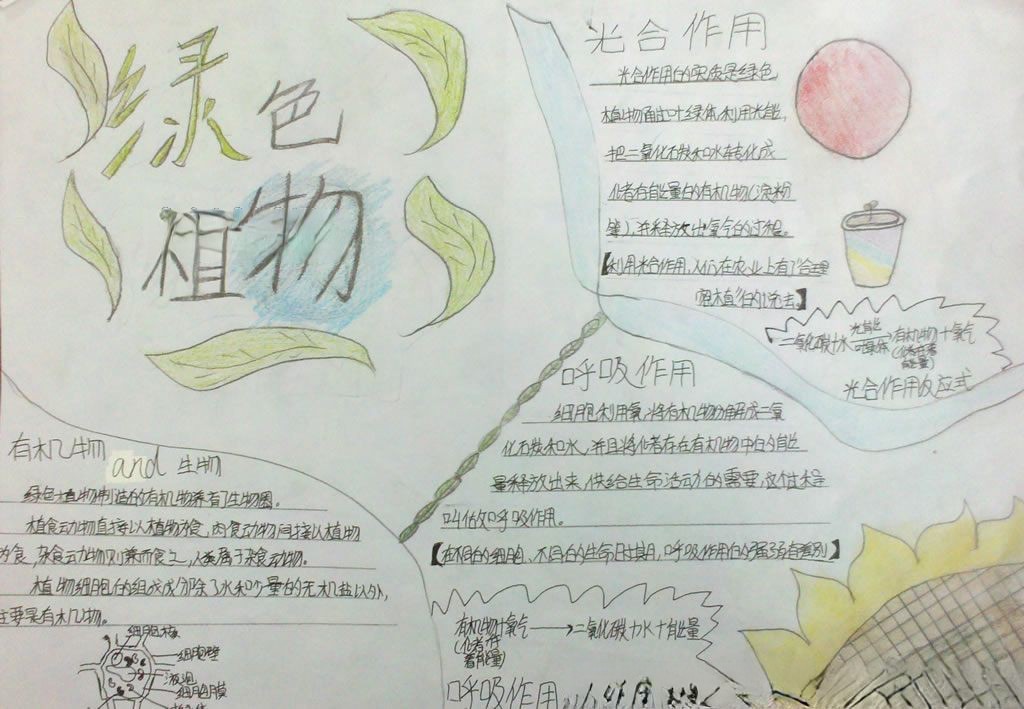 绿色
植物
光合作用
光合作用的实质是绿色
植物通过叶绿体,利用光能,
把二氧化碳和水转化成
储存能量的有机物(淀粉
等),并释放出氧气的过程。
【利用光合作用,人们在农业上有了"合理
密植"的说法。】
二氧化碳+水 光能 叶绿体 有机物+氧气
(储存着
能量)
光合作用反应式
呼吸作用
细胞利用氧,将有机物分解成二氧
化碳和水,并且将储存在有机物中的能
量释放出来,供给生命活动的需要,这个过程
叫做呼吸作用。
【在不同的细胞、不同的生命时期,呼吸作用的强弱有差别】
有机物+氧气→二氧化碳+水+能量
(储存
着能量)
呼吸作用
有机物 and 生物
绿色植物制造的有机物养育了生物圈。
植食动物直接以植物为食,肉食动物间接以植物
为食,杂食动物则兼而食之,人类属于杂食动物。
植物细胞的组成成分除了水和少量的无机盐以外,
主要是有机物。
细胞核
细胞壁
液泡
细胞膜